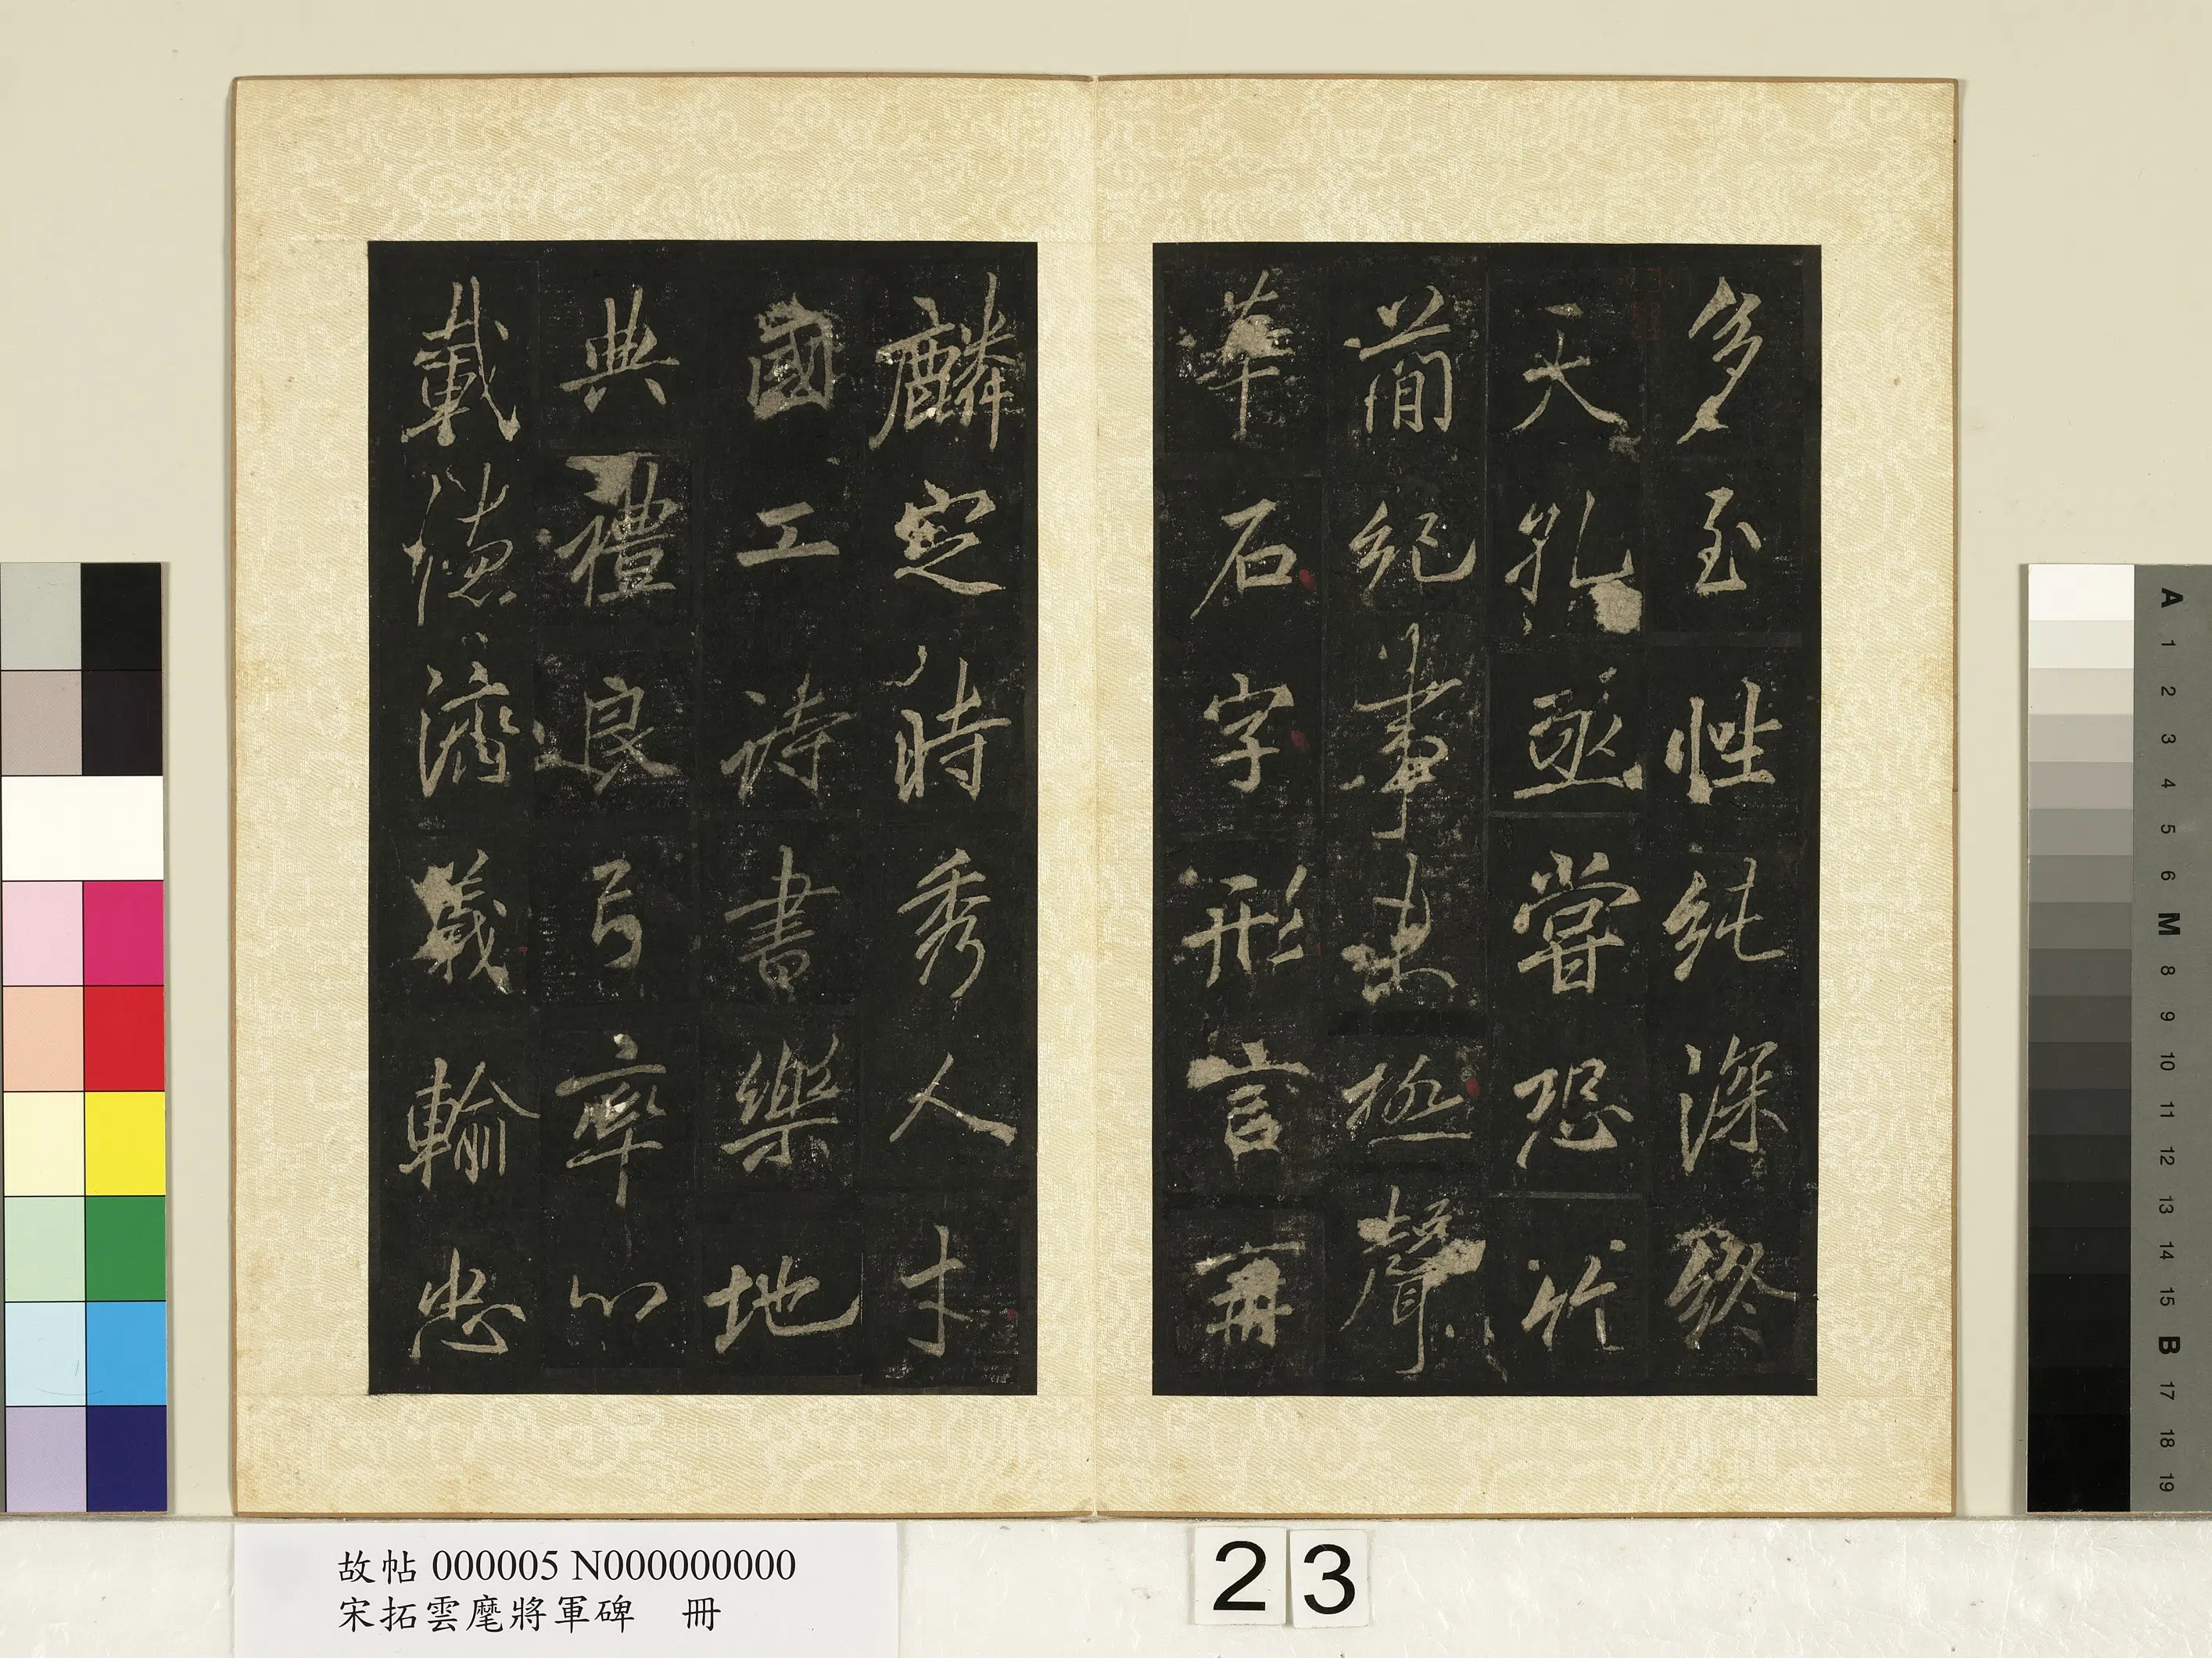 多至性純深終
天孔亟嘗恐竹
簡紀事未極聲
華石字形言再
麟定時秀人才
國工詩書樂地
典禮良弓率心
載德濟義輸忠
故帖 000005 N000000000
宋拓雲麾將軍碑 冊
23
A 1 2 3 4 5 6 M 8 9 10 11 12 13 14 15 B 17 18 19